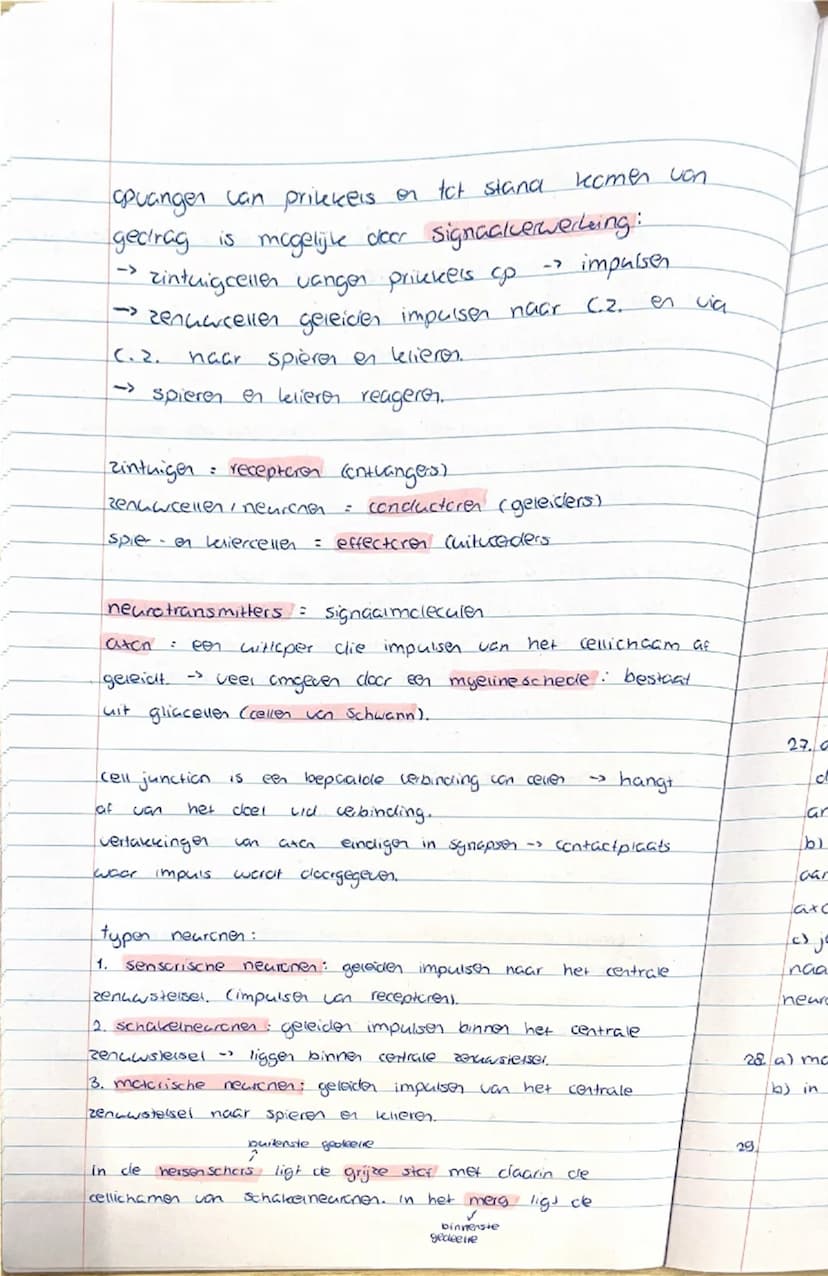 opvangen van prikkels en tot stand komen van
gedrag is mogelijk door signaalverwerking:
-> zintuigcellen vangen prikkels op -> impulsen
-> zenuwcellen geleiden impulsen naar C.Z. en via
C.Z. naar spieren en klieren.
-> spieren en klieren reageren.
zintuigen = receptoren (ontvangers)
zenuwcellen / neuronen = conductoren (geleiders)
spier- en kliercellen = effectoren (uitvoerders
neurotransmitters = signaalmoleculen
axon : een uitloper die impulsen van het cellichaam af
geleidt. -> veel omgeven door een myelineschede : bestaat
uit gliacellen (cellen van Schwann).
cell junction is een bepaalde verbinding van cellen -> hangt
af van het doel v/d verbinding.
vertakkingen van axon eindigen in synapsen -> contactplaats
waar impuls wordt doorgegeven.
typen neuronen:
1. sensorische neuronen: geleiden impulsen naar het centrale
zenuwstelsel. (impulsen van receptoren).
2. schakelneuronen : geleiden impulsen binnen het centrale
zenuwstelsel -> liggen binnen centrale zenuwstelsel.
3. motorische neuronen: geleiden impulsen van het centrale
zenuwstelsel naar spieren en klieren.
buitenste gedeelte
in de hersenschors ligt de grijze stof met daarin de
cellichamen van schakelneuronen. in het merg ligt de
binnenste
gedeelte
27. a
d
ar
b)
aar
axo
c) j
naa
neuro
28. a) mo
b) in
29.